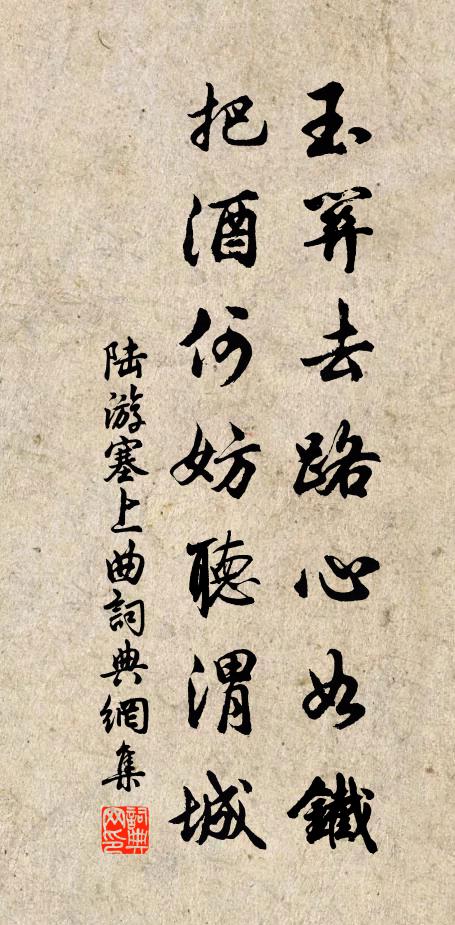 玉關去路心如鐵
把酒何妨聽渭城
陸游塞上曲詞典網集
詞典网印